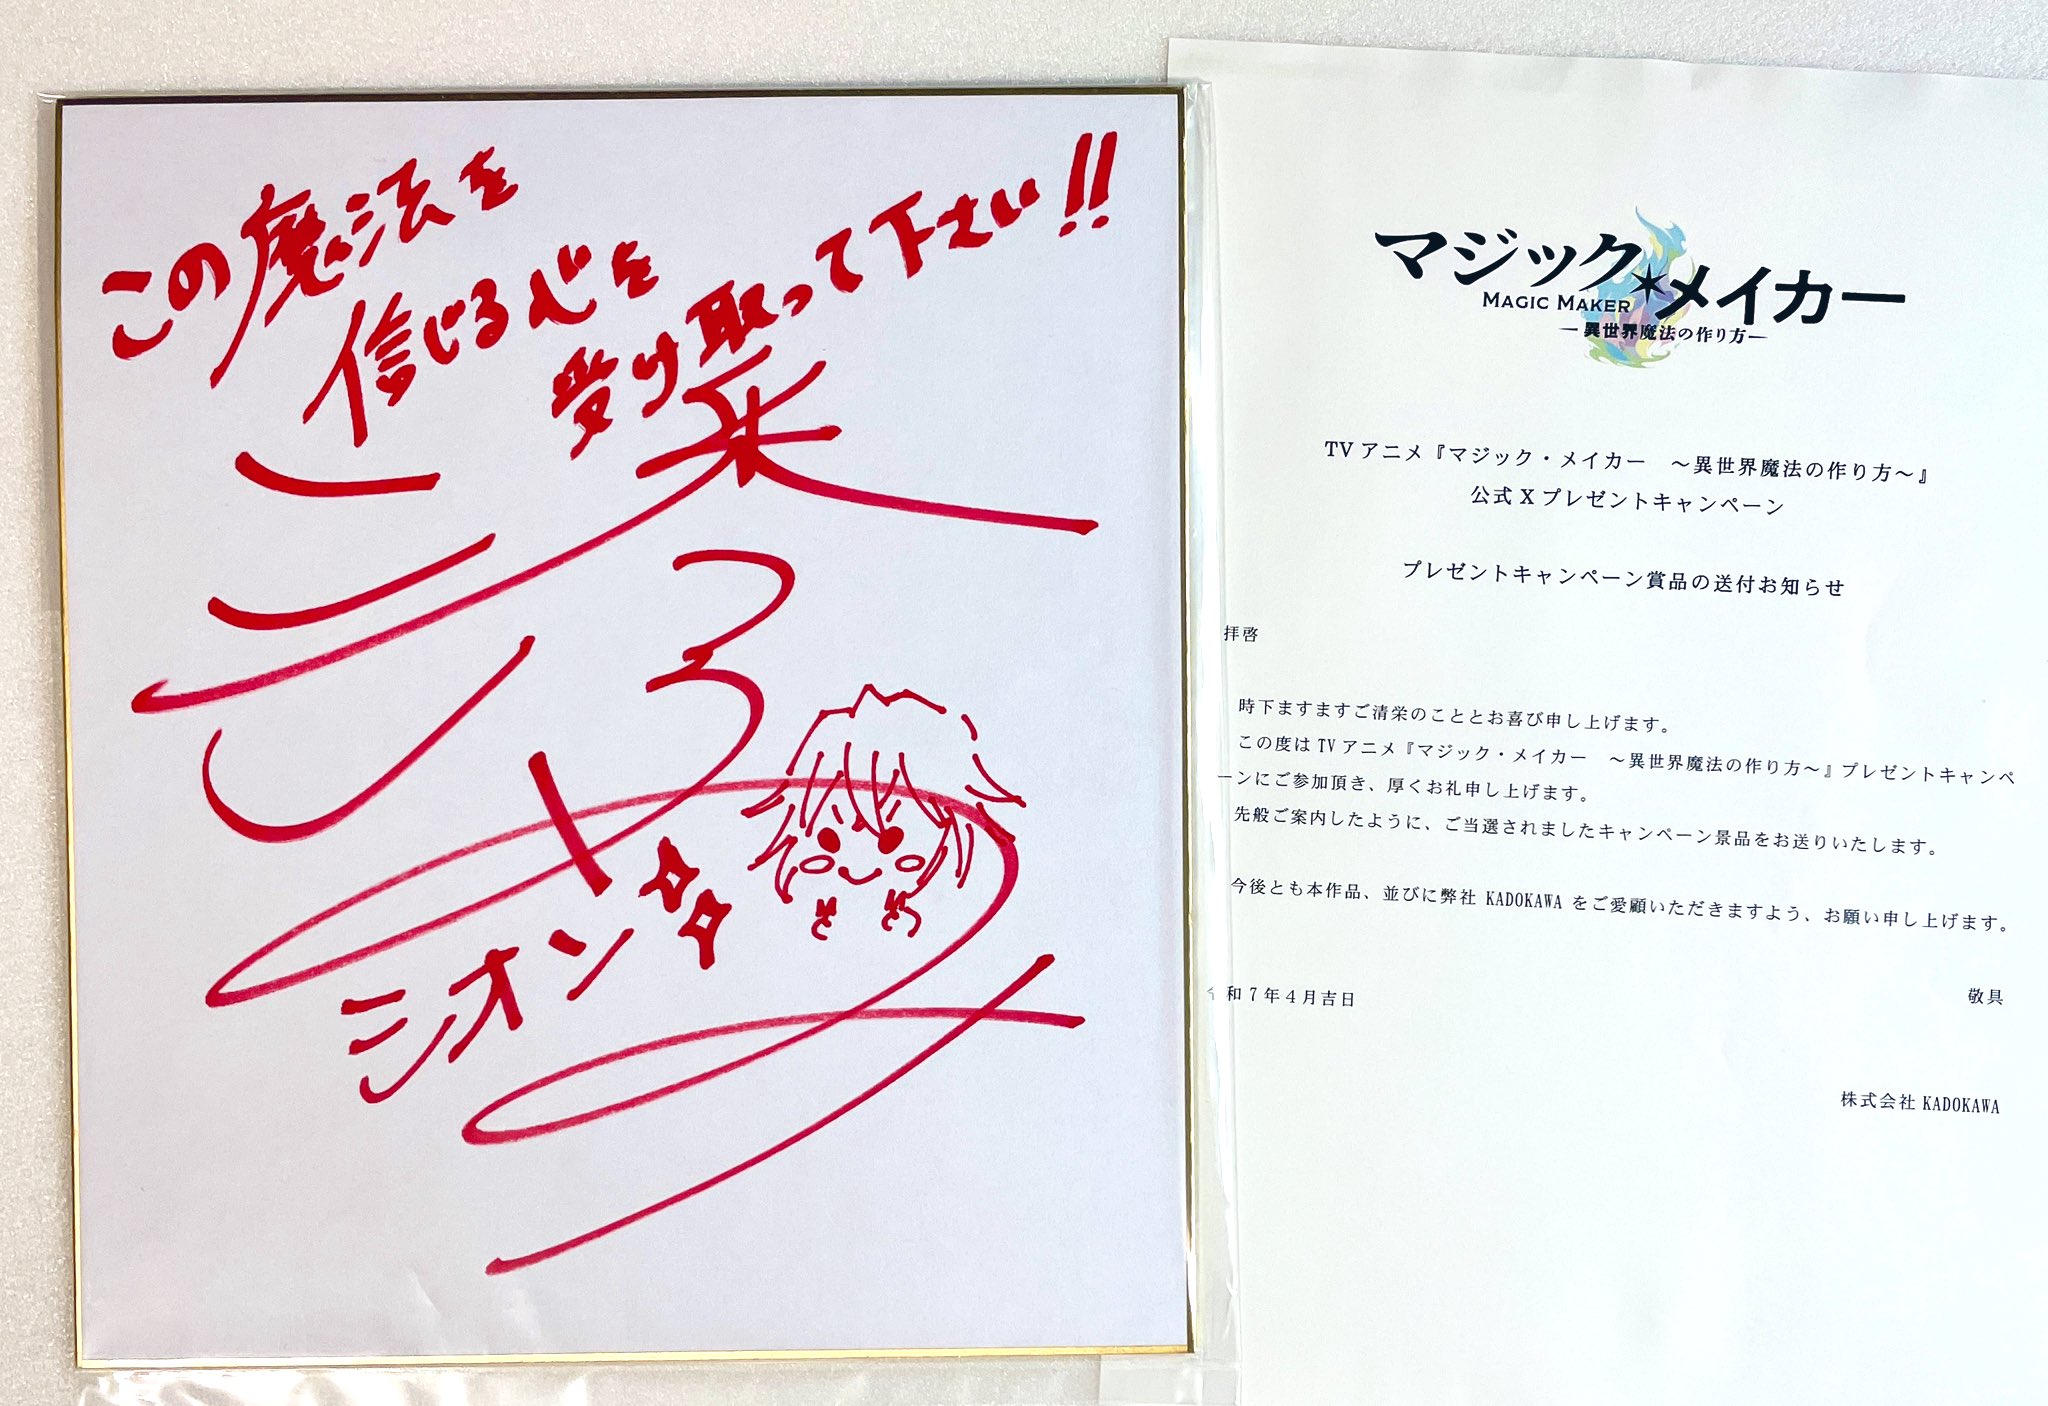 この魔法を
信じる心を
受け取って下さい!!
シオン
マジック✶メイカー
MAGIC MAKER
―異世界魔法の作り方―
TVアニメ『マジック・メイカー　～異世界魔法の作り方～』
公式Xプレゼントキャンペーン
プレゼントキャンペーン賞品の送付お知らせ
拝啓
時下ますますご清栄のこととお喜び申し上げます。
この度はTVアニメ『マジック・メイカー　～異世界魔法の作り方～』プレゼントキャンペ
ーンにご参加頂き、厚くお礼申し上げます。
先般ご案内したように、ご当選されましたキャンペーン景品をお送りいたします。
今後とも本作品、並びに弊社 KADOKAWA をご愛顧いただきますよう、お願い申し上げます。
敬具
令和7年4月吉日
株式会社 KADOKAWA